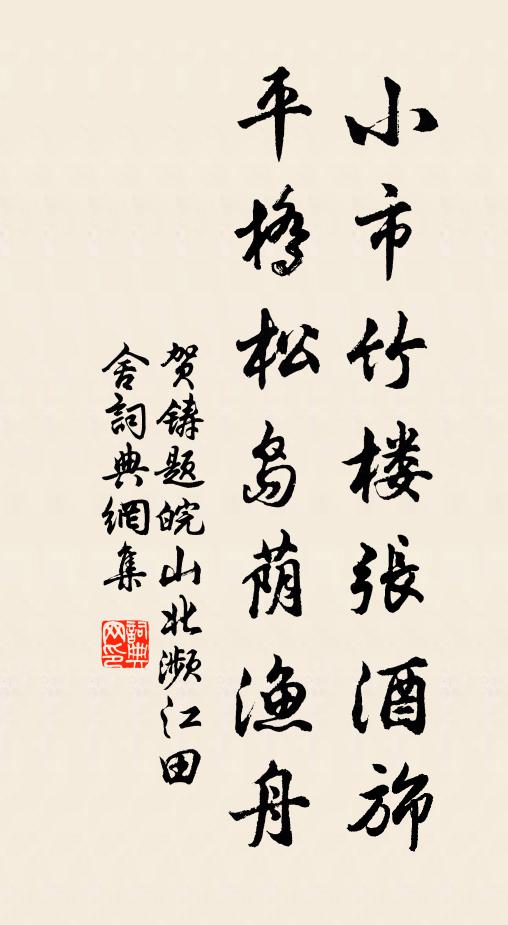 小市竹楼張酒斾
平橋松岛荫渔舟
贺铸题皖山北濒江田
舍詞典網集
詞典网印